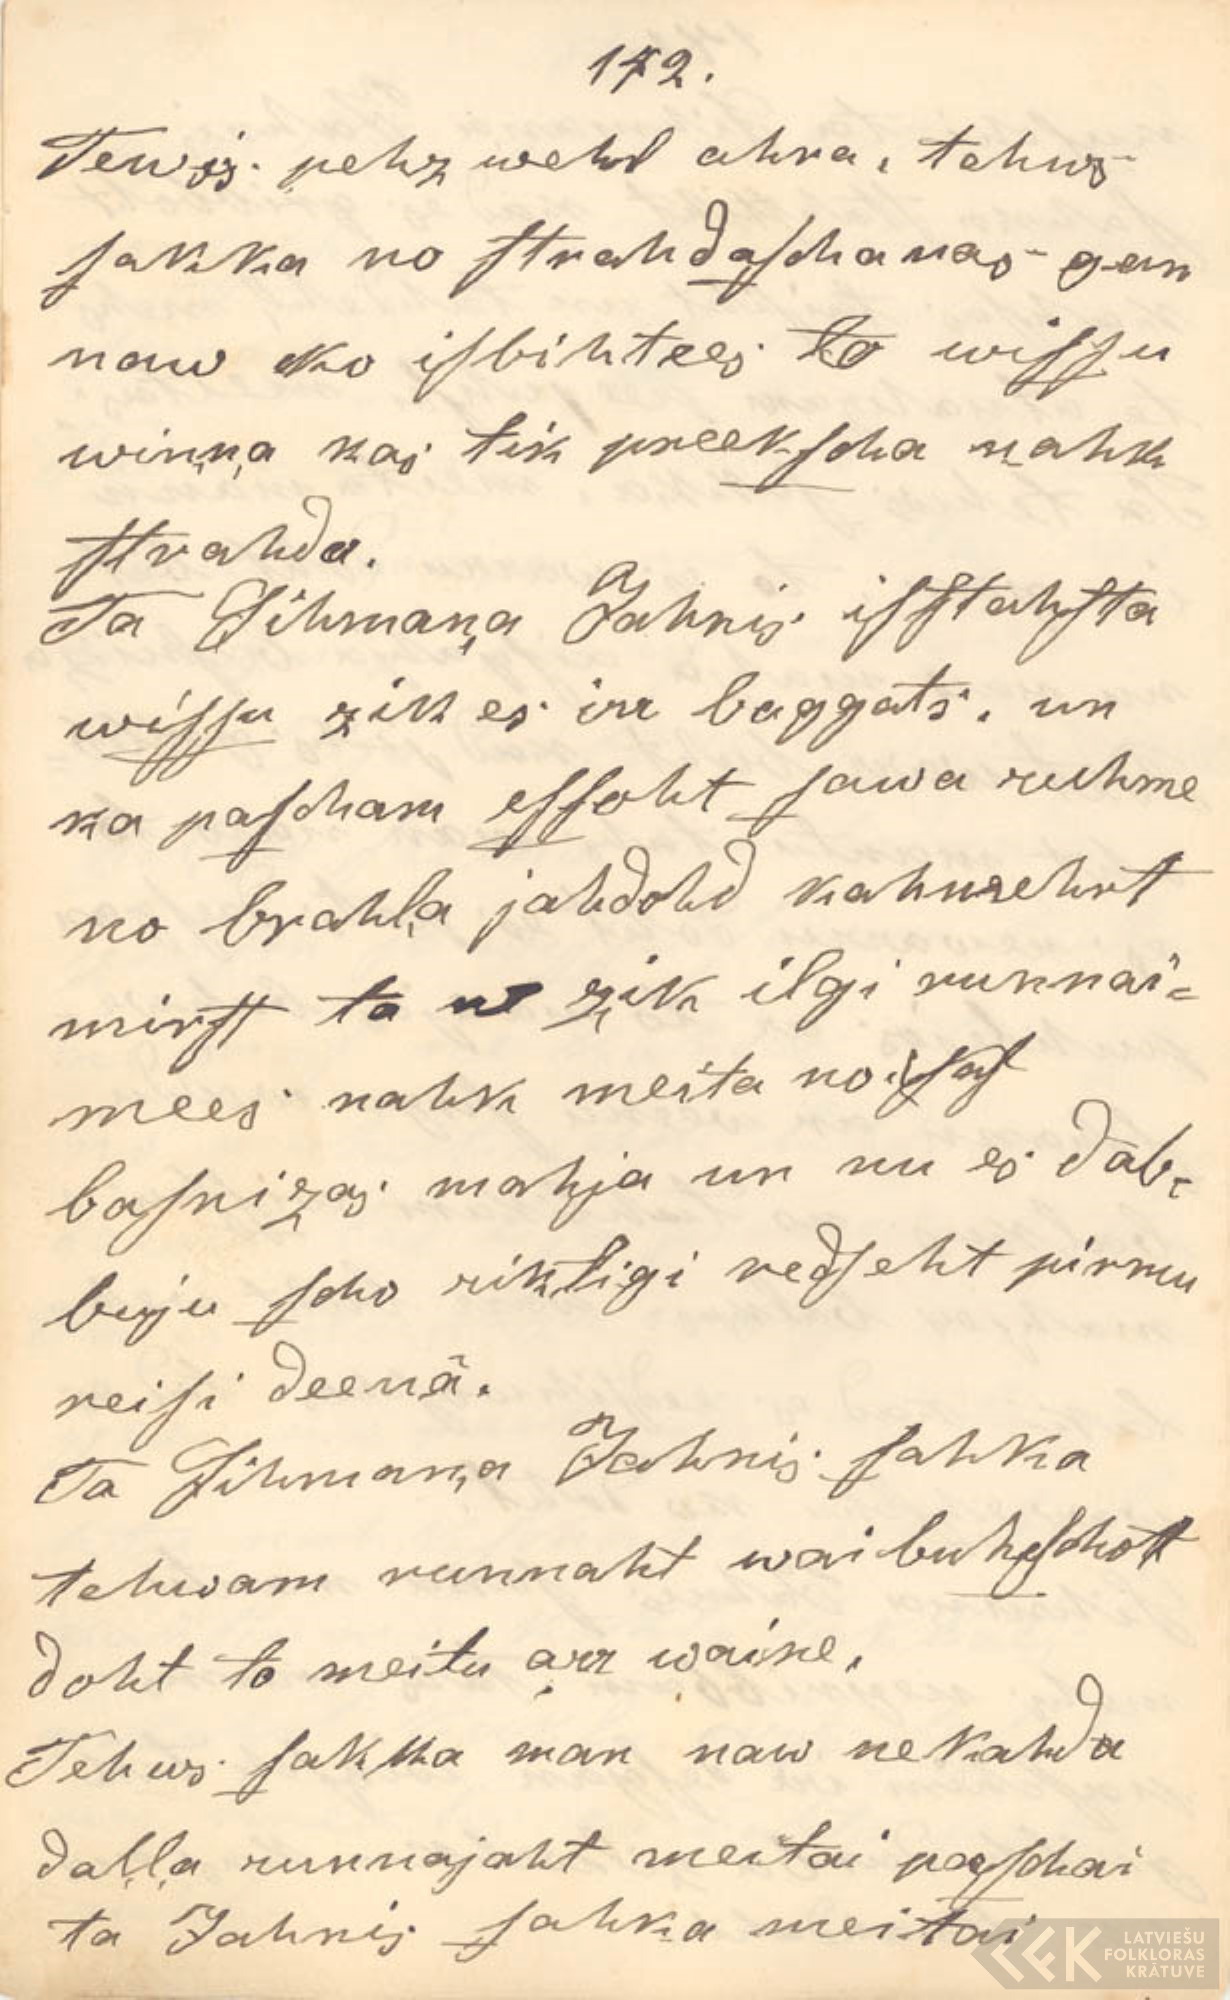 172.
Tewis pehz wehl ahra, tehws
sakka no strahdaschanas gan
naw ko isbihtees to wissu
winņa kas tik preekscha nahk
strahda.
Ta Sihmaņa Jahnis isstahsta
wissu zik es irr baggats, un
ka pascham essoht sawa ruhme
no brahļa jahdohd kahnsehrt
mirst ta zik ilgi runnai=
mees nahk meita no
basnizas mahja un nu es dab=
buju scho riktigi redseht pirmu
reisi deenā.
Ta Sihmaņa Jahnis sahka
tehwam runnaht wai buhschott
doht to meitu arr waine,
Tehws sakka man naw nekahda
daļļa runnajaht meitai paschai
ta Jahnis sahka meitai
LATVIEŠU
FOLKLORAS
KRĀTUVE